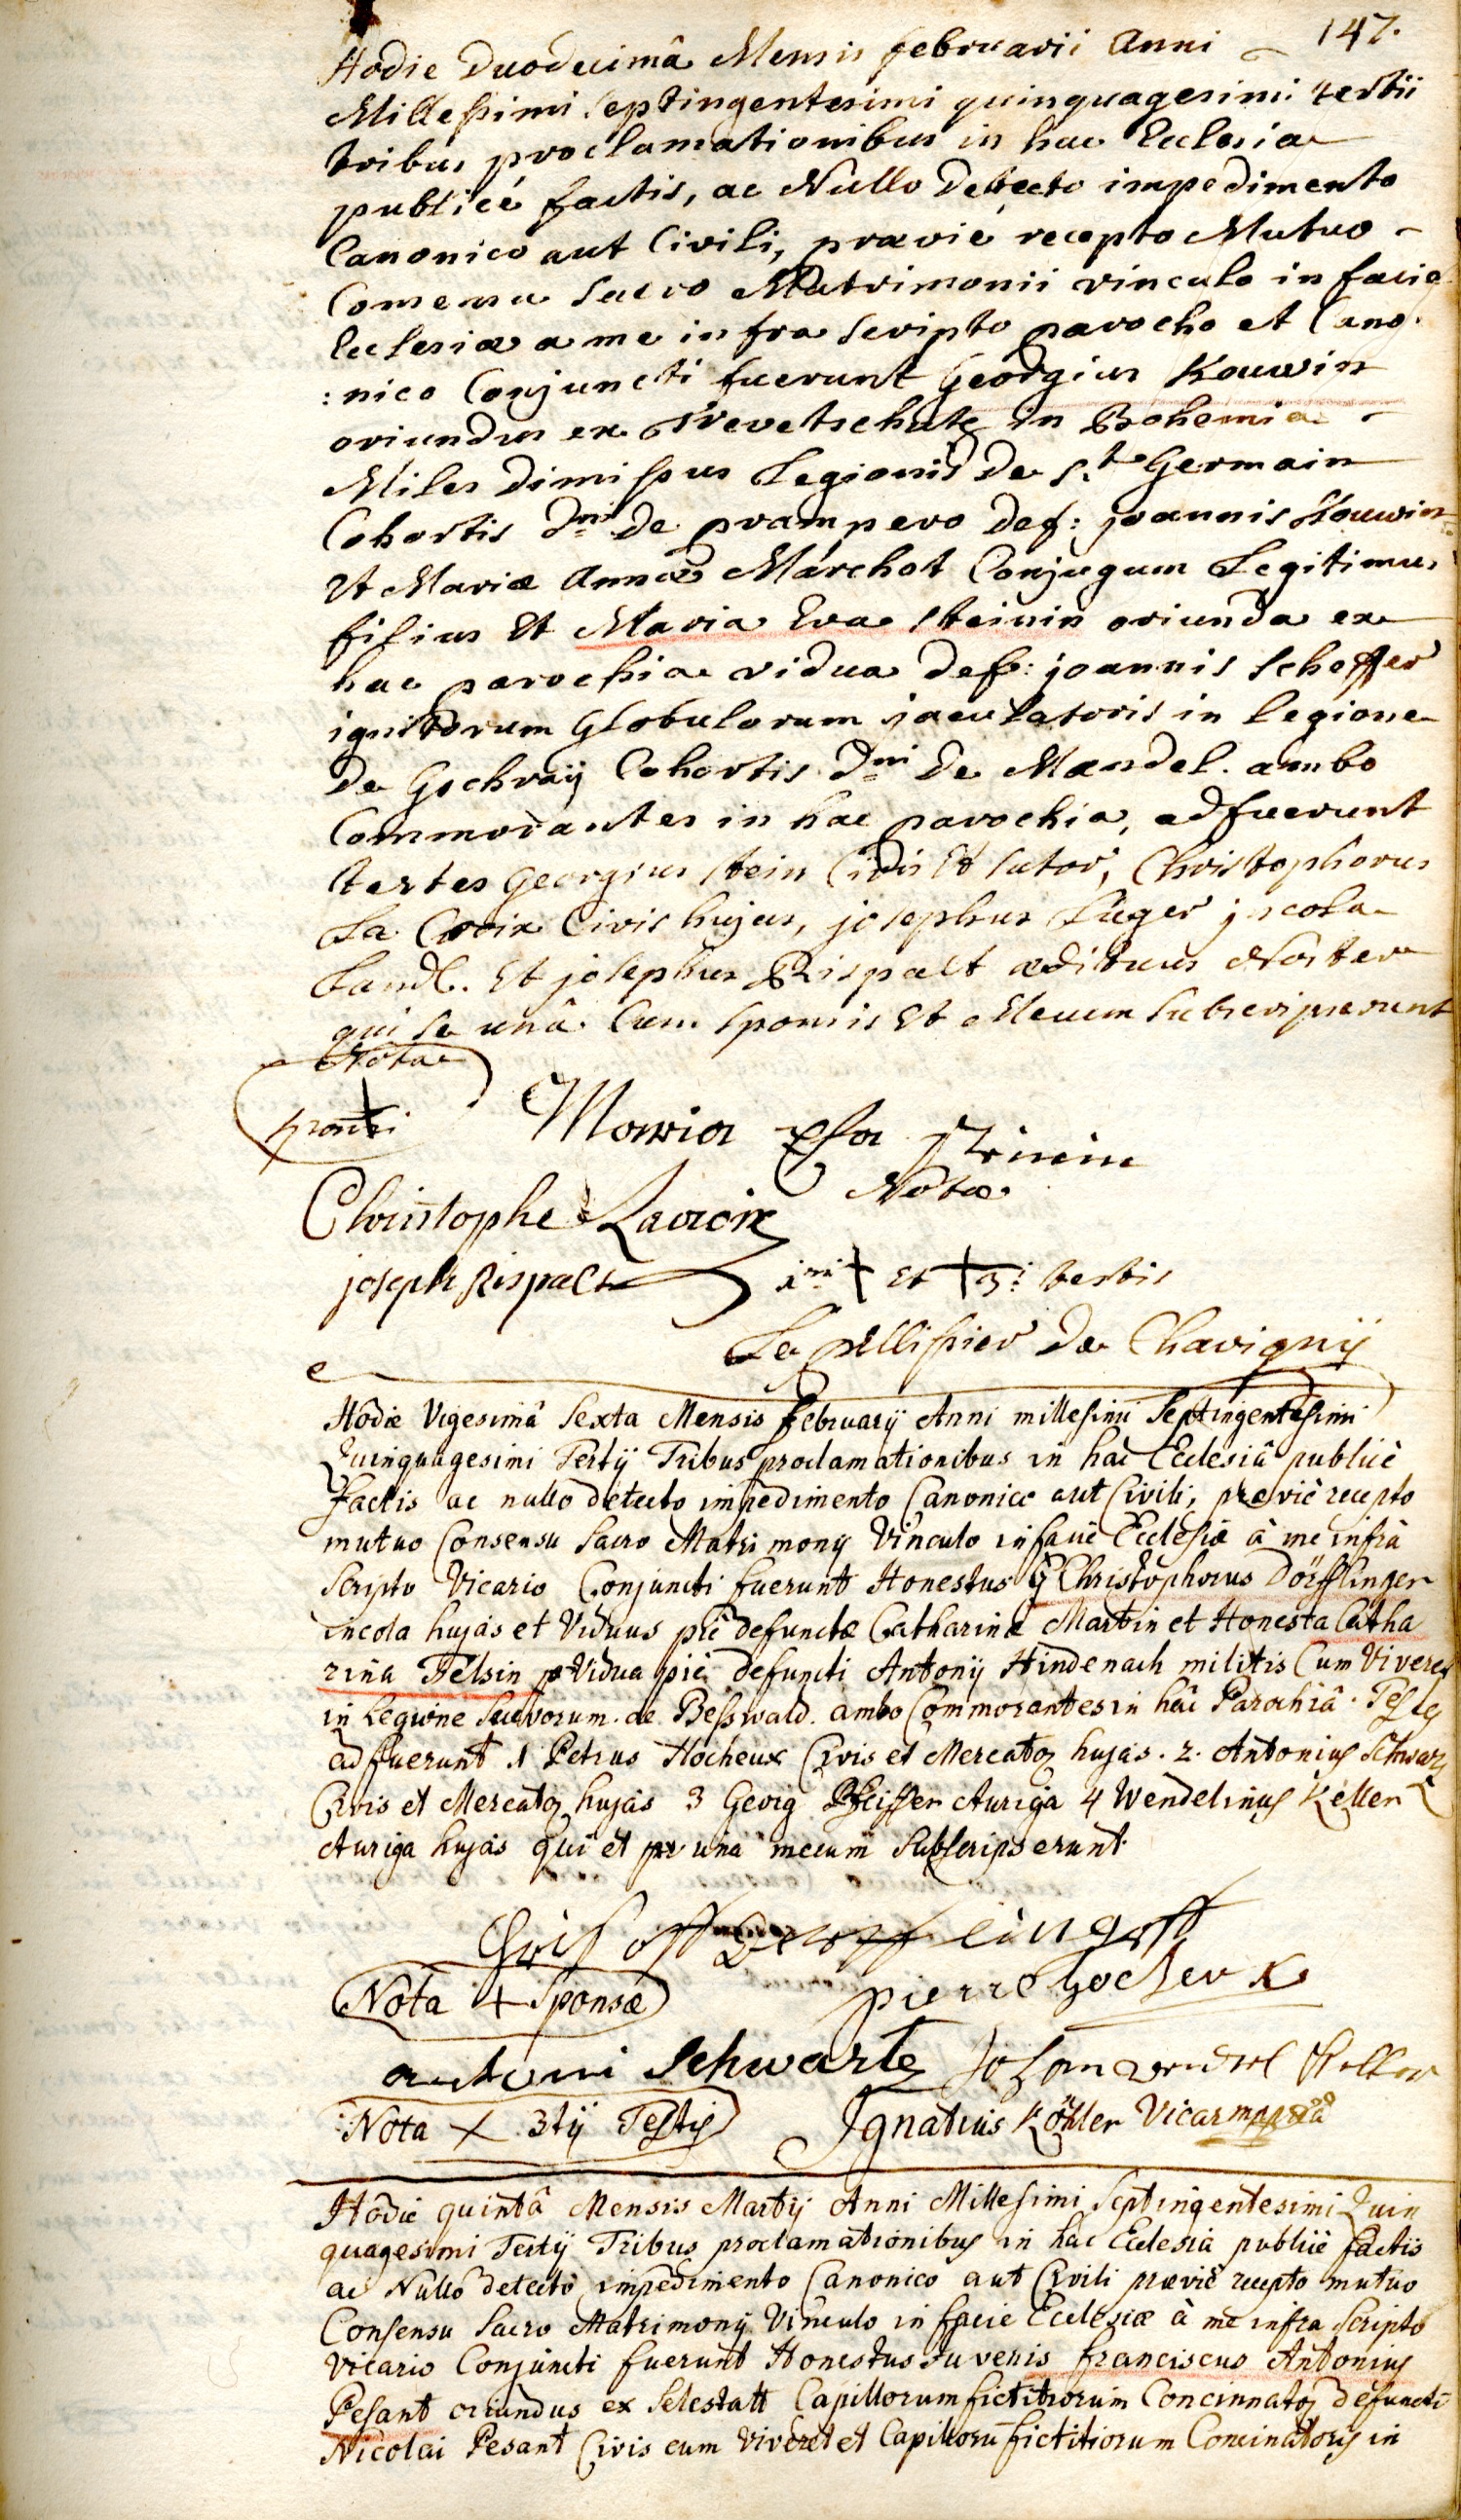 147.
Hodie Duodecimâ Mensis februarii Anni
Millesimi septingentesimi quinquagesimi tertii
tribus proclamationibus in hac Ecclesia
publicè factis, ac Nullo Detecto impedimento
Canonico aut Civili, prævié recepto Mutuo
Comensu Sacro Matrimonii vinculo in facie
Ecclesiæ a me infra scripto parocho et Cano
:nico Conjuncti fuerunt Georgius Kouwin
oriundus ex in Bohemia
Miles dimissus Legionis De St Germain
Cohortis Dni de prampero Def: joannis Kouwin
et Mariæ Annæ Marchot Conjugum Legitimus
filius et Maria Eva Steinin oriunda ex
hac parochia vidua Def: joannis Scheffer
ignitorum Globulorum jaculatoris in Legione
De Gschraij Cohortis Dni De Mandel. ambo
Commorantes in hac parochia, adfuerunt
testes Georgius Stein Civis et sutor, Christophorus
La Croix Civis hujus, josephus Lüger jncola
Land. Et josephus Rispalt ædituus Noster
qui se unâ Cum Sponsis Et Mecum subscripserunt
Nota
sponsi
Maria Efa Steinin
Nota
Christophe Lacroix
joseph Rispalt 1mi + Et + 3i testis
Le pellissier De Chavignij
Hodie Vigesimâ Sexta Mensis februarij Anni millesimi Septingentesimi
Quinquagesimi Tertij Tribus proclamationibus in hac Ecclesiâ publicè
factis ac nullo detecto impedimento Canonico aut Civili, prævié recepto
mutuo Consensu Sacro Matrimonij Vinculo in facie Ecclesiæ à me infrà
Scripto Vicario Conjuncti fuerunt Honestus Christophorus Dörfflinger
incola hujas et Viduus pié defunctæ Catharinæ Martin et Honesta Catha
rina Felsin Vidua pié defuncti Antonij Hindenach militis Cum Viveret
in Legione Suevorum de Besswald. ambo Commorantes in hâc Parochiâ. Testes
adfuerunt 1 Petrus Hocheux Civis et Mercator hujas. 2. Antonius Schwarz
Civis et Mercator hujas 3 Georg Pfeiffer Auriga 4 Wendelinus Keller
Auriga hujas Qui et una mecum Subscripserunt
Chrisoff Derpflinger
Nota + Sponsæ
pierre hocheux
antoni Schwartz Johan wendel Keller
Nota X 3tij Testis
Ignatius Köhler Vicar
Hodie quintâ Mensis Martij Anni Millesimi Septingentesimi Quin
quagesimi Tertij Tribus proclamationibus in hac Ecclesia publicè factis
ac Nullo detecto impedimento Canonico aut Civili prævié recepto mutuo
Consensu Sacro Matrimonij Vinculo in facie Ecclesiæ à me infra Scripto
Vicario Conjuncti fuerunt Honestus Juvenis franciscus Antonius
Pesant oriundus ex Selestatt Capillorum fictitiorum Concinnator defuncti
Nicolai Pesant Civis cum Viveret et Capilloru fictitiorum Concinatoris in